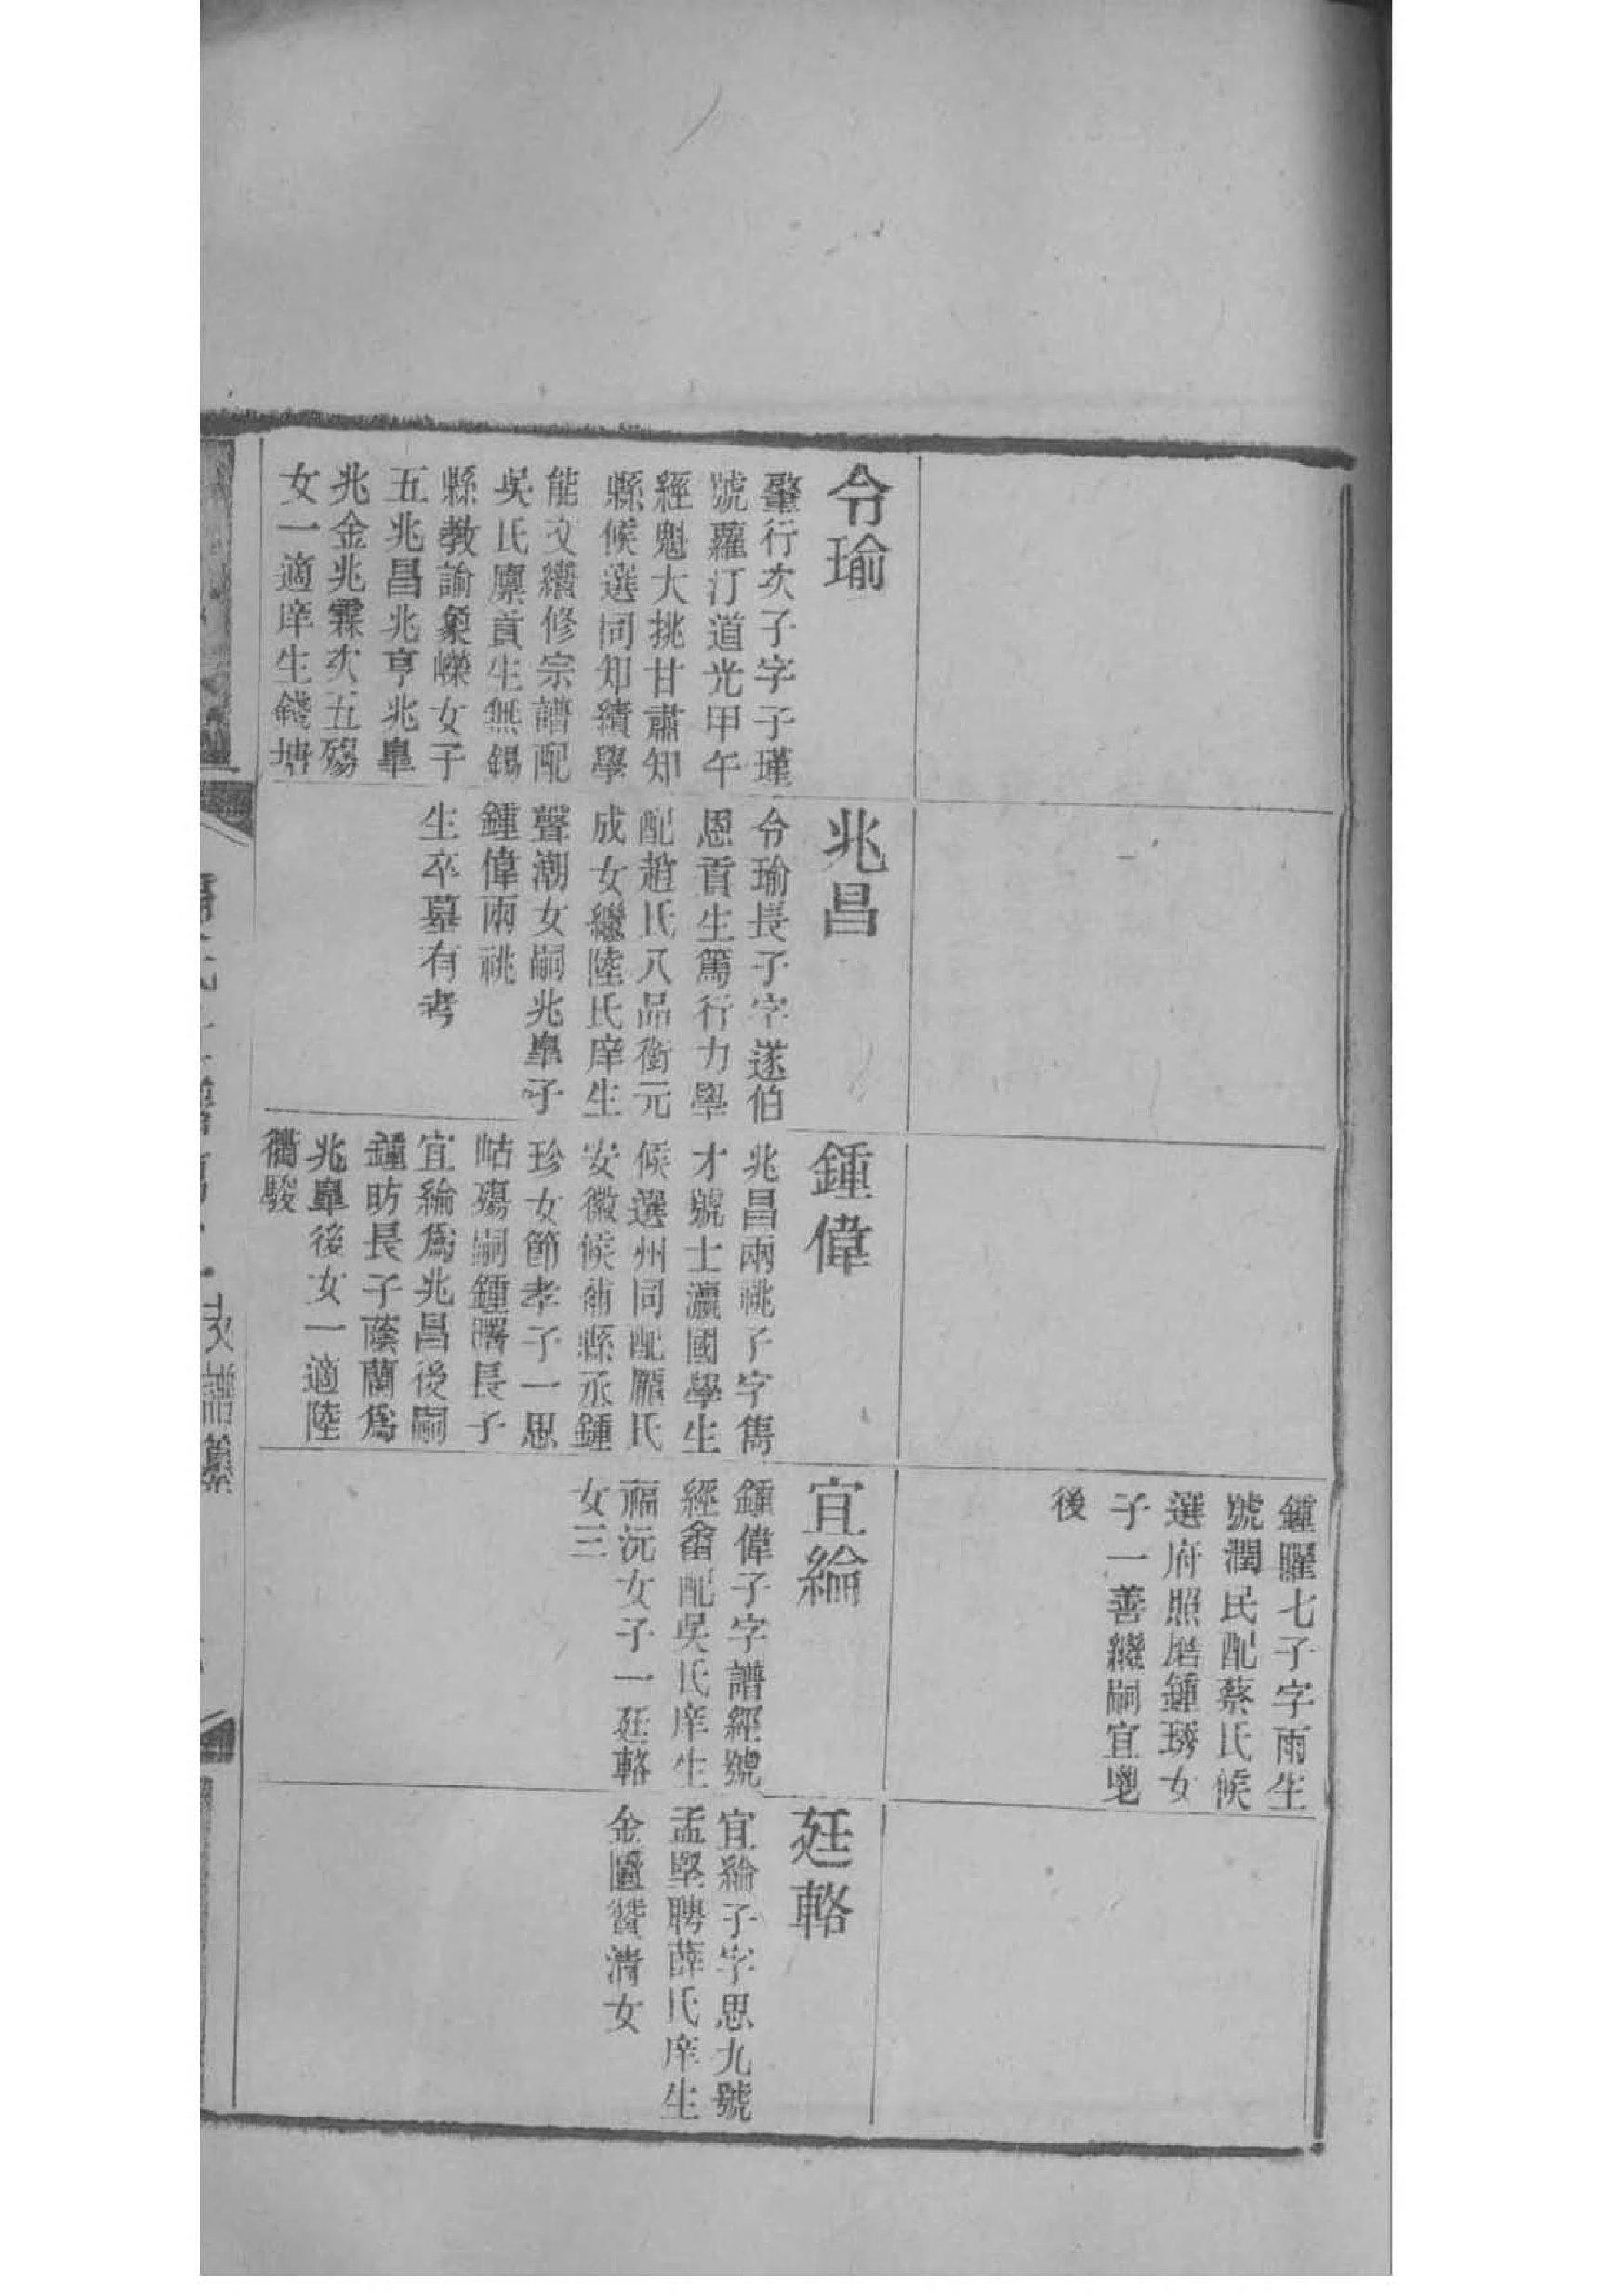 鍾曜七子字雨生
號潤民配蔡氏候
選府照磨鍾琇女
子一善繼嗣宜鬯
後
令瑜
肇行次子字子瑾
號蘿汀道光甲午
經魁大挑甘肅知
縣候選同知績學
能文續修宗譜配
吳氏廪貢生無錫
縣教諭象嶸女子
五兆昌兆亨兆臯
兆金兆霖次五殤
女一適庠生錢塘
兆昌
令瑜長子字遂伯
恩貢生篤行力學
配趙氏八品銜元
成女繼陸氏庠生
聲潮女嗣兆臯子
鍾偉兩祧
生卒墓有考
鍾偉
兆昌兩祧子字雋
才號士瀛國學生
候選州同配顧氏
安徽候補縣丞鍾
珍女節孝子一思
岵殤嗣鍾曙長子
宜綸爲兆昌後嗣
鍾昉長子蔭蘭爲
兆臯後女一適陸
衢駿
宜綸
鍾偉子字譜經號
經畬配吳氏庠生
福沅女子一廷輅
女三
廷輅
宜綸子字思九號
孟堅聘薛氏庠生
金匱晉淸女